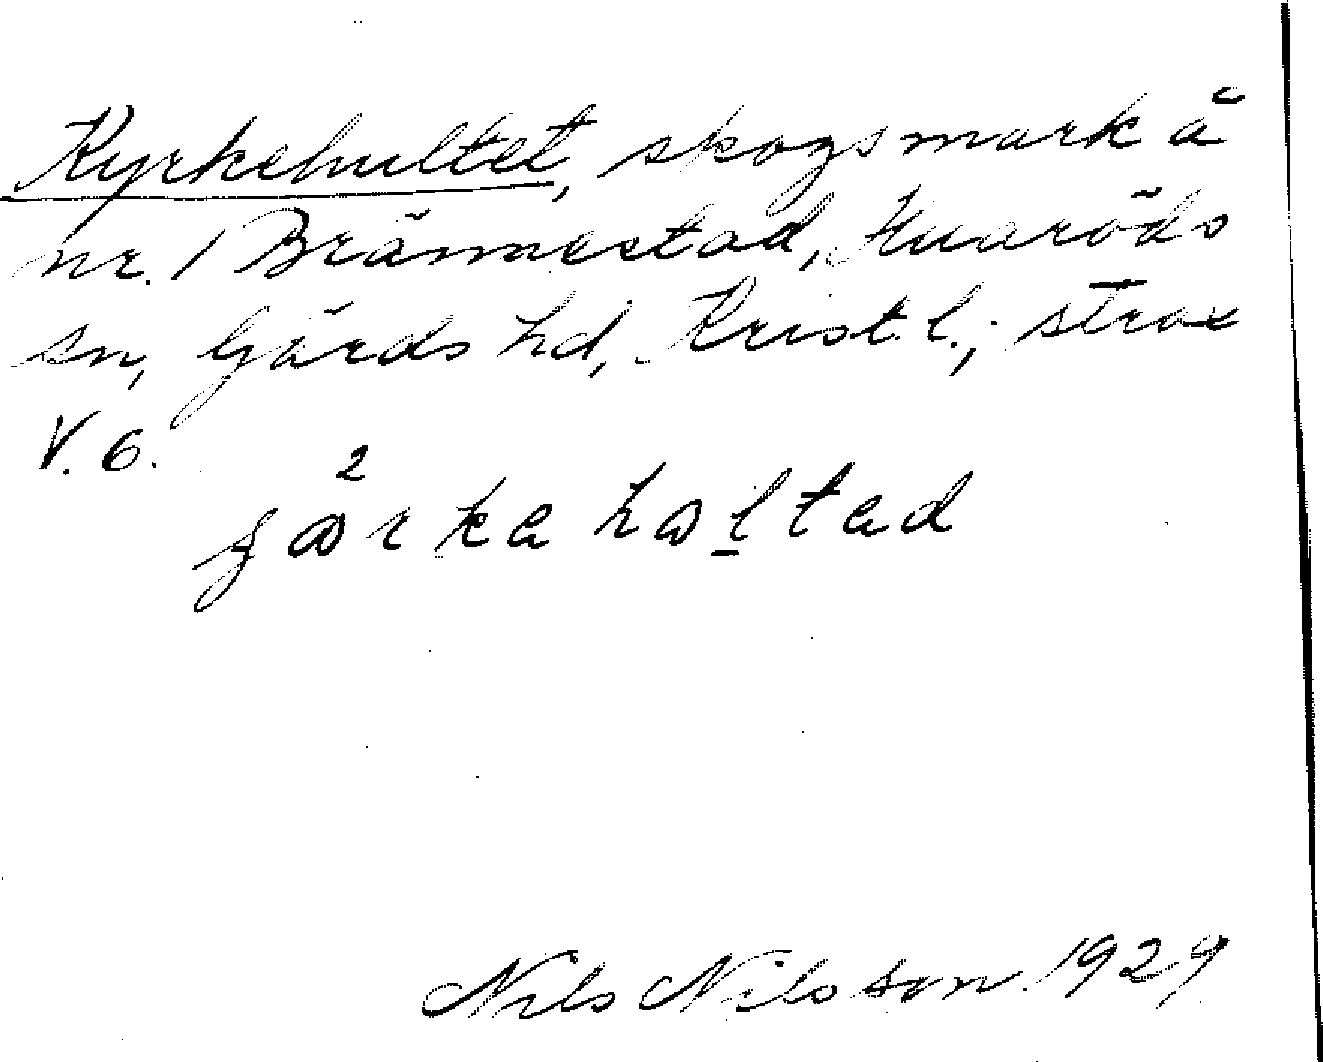 Kyrkehultet, skogsmark å
nr. 1 Brännestad, Huaröds
sn, Gärds hd, Krist. l.; strax
V. 6.
2
Nils Nilsson. 1929